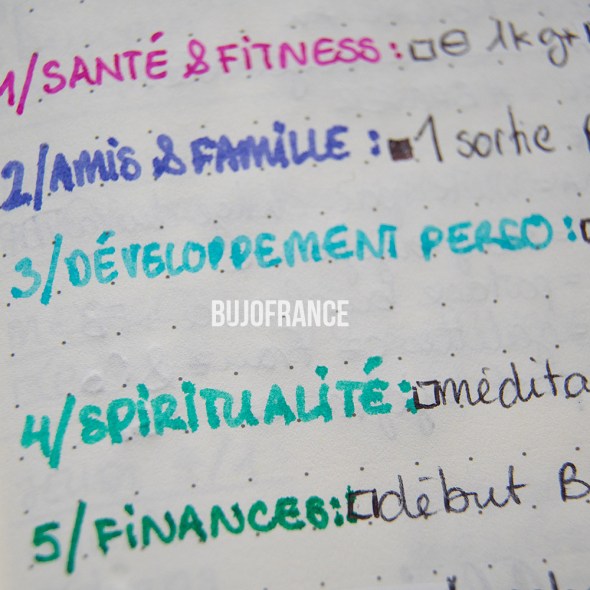 1/SANTÉ & FITNESS: ⊖ 1kg
2/AMIS & FAMILLE: 1 sortie.
3/DÉVELOPPEMENT PERSO:
BUJOFRANCE
4/SPIRITUALITÉ: médita
5/FINANCES: début. B